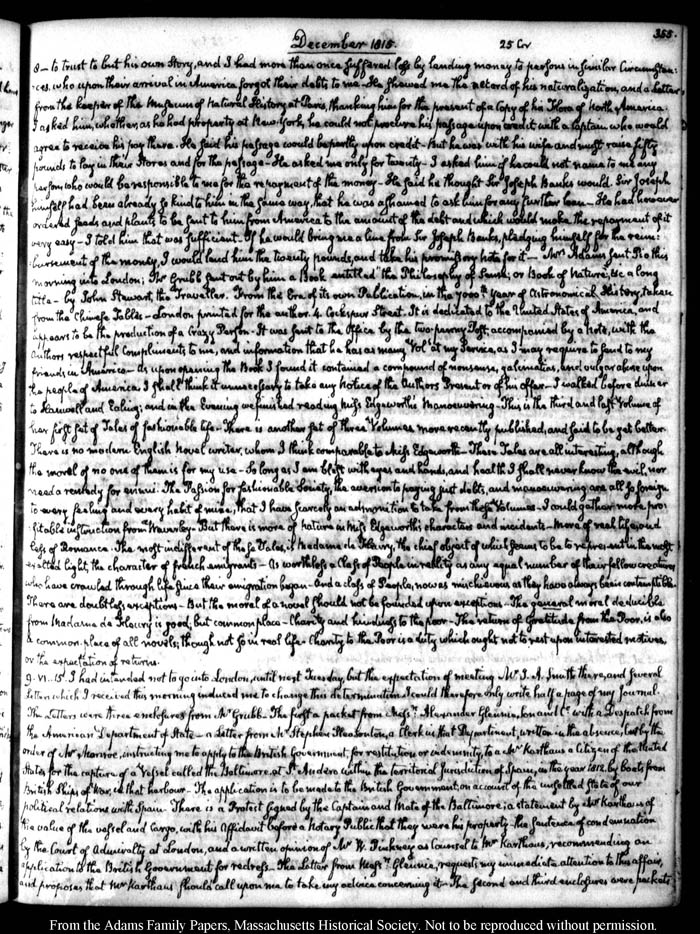 December 1815. 25 Cr 353.
8 – to trust to but his own Story, and I had more than once suffered loss by lending money to persons in similar Circumstan:
:ces, who upon their arrival in America forgot their debts to me – He shewed me the record of his naturalization, and a Letter
from the keeper of the Museum of Natural History at Paris, thanking him for the present of a Copy of his Flora of North America.
I asked him, whether, as he had property at New-York, he could not procure his passage upon credit with a Captain who would
agree to receive his pay there. He said his passage would be partly upon credit – But he was with his wife and must raise fifty
pounds to lay in their Stores and for the passage – He asked me only for twenty – I asked him if he could not name to me any
person who would be responsible to me for the repayment of the money – He said he thought Sir Joseph Banks would. Sir Joseph
himself had been already so kind to him in the same way, that he was ashamed to ask him for any further loan – He had however
ordered seeds and plants to be sent to him from America to the amount of the debt and which would make the repayment of it
very easy – I told him that was sufficient. If he would bring me a line from Sir Joseph Banks, pledging himself for the reim:
:bursement of the money, I would lend him the twenty pounds, and take his promissory note for it – Mrs Adams sent to this
morning into London; Mr Grubb sent out by him a Book entitled the Philosophy of Sense; or Book of Nature; &c a long
title – by John Stewart, the Traveller. From the Era of its own Publication, in the 7000th year of Astronomical History, taken
from the Chinese Tables – London printed for the author. 4. Cockspur Street. It is dedicated to the United States of America, and
appears to be the production of a Crazy Person – It was sent to the Office by the two-penny Post, accompanied by a note, with the
Authors respectful Compliments to me, and information that he has as many Vols at my Service, as I may require to send to my
friends in America – As upon opening the Book I found it contained a compound of nonsense, galimatias, and vulgar abuse upon
the people of America, I shall think it unnecessary to take any notice of the Authors Present or of his offer – I walked before dinner
to Hanwell and Ealing; and in the Evening we finished reading Miss Edgeworth's Manoeuvering – This is the third and last Volume of
her first set of Tales of fashionable life – There is another set of three Volumes more recently published, and said to be yet better.
There is no modern English Novel writer, whom I think comparable to Miss Edgeworth – These Tales are all interesting, although
the moral of no one of them is for my use – So long as I am blest with eyes and hands, and health I shall never know the evil, nor
need a remedy for ennui. The Passion for fashionable Society, the aversion to paying just debts, and manoeuvering are all so foreign
to every feeling and every habit of mine, that I have scarcely an admonition to take from these Volumes – I could gather more pro:
:fitable instruction from Waverley – But there is more of nature in Miss Edgeworth's characters and incidents – More of real life, and
less of Romance – The most indifferent of these Tales, is Madame de Fleury, the chief object of which seems to be to represent in the most
exalted light, the character of french emigrants – As worthless a Class of People in reality as any equal number of their fellow creatures
who have crawled through life since their emigration began – And a class of People, now as mischievous as they have always been contemptible.
There are doubtless exceptions – But the moral of a novel should not be founded upon exceptions – The general moral deducible
from Madame de Fleury is good; but common place – Charity and kindness to the poor – The return of Gratitude from the Poor, is also
a common-place of all novels; though not so in real life – Charity to the Poor is a duty which ought not to rest upon interested motives,
or the expectation of returns.
9. VI. 15 I had intended not to go into London, until next Tuesday, but the expectation of meeting Mr J. A. Smith there, and several
Letters which I received this morning induced me to change this determination. I could therefore only write half a page of my Journal.
The Letters were three enclosures from Mr Grubb – The first a packet from Messrs Alexander Glennie, Son and Co with a Despatch from
the American Department of State – a Letter from Mr Stephen Pleasonton, a Clerk in that Department, written in the absence, but by the
order of Mr Monroe, instructing me to apply to the British Government, for restitution or indemnity, to a Mr Karthaus a Citizen of the United
States for the capture of a Vessel called the Baltimore, at St Andero within the territorial Jurisdiction of Spain, in the year 1812, by boats from
British Ships of War, in that harbour – The application is to be made to the British Government on account of the unsettled State of our
political relations with Spain – There is a Protest signed by the Captain and Mate of the Baltimore; a statement by Mr Karthaus of
the value of the vessel and Cargo, with his Affidavit before a Notary Public that they were his property – the sentence of condemnation
by the Court of Admiralty at London, and a written opinion of Mr W. Pinkney as Counsel to Mr Karthaus, recommending an
application to the British Government for redress – The Letter from Messrs Glennie, requests my immediate attention to this affair,
and proposes that Mr Karthaus should call upon me to take my advice concerning it – The second and third enclosures were packets
From the Adams Family Papers, Massachusetts Historical Society. Not to be reproduced without permission.